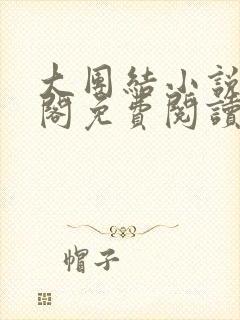 大團結小說
閣免費閱讀
帽子